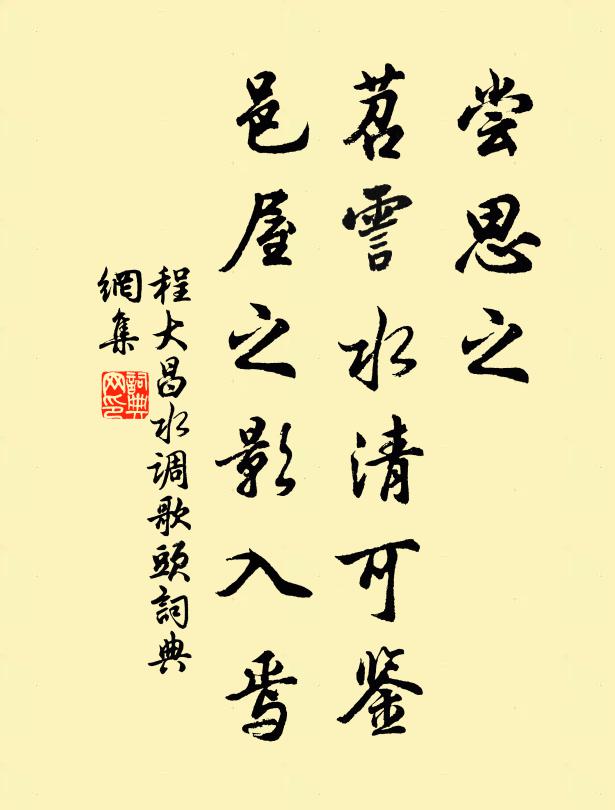 尝思之
苕霅水清可鉴
邑屋之影入焉
程大昌水调歌頭詞典
網集
詞典
网印